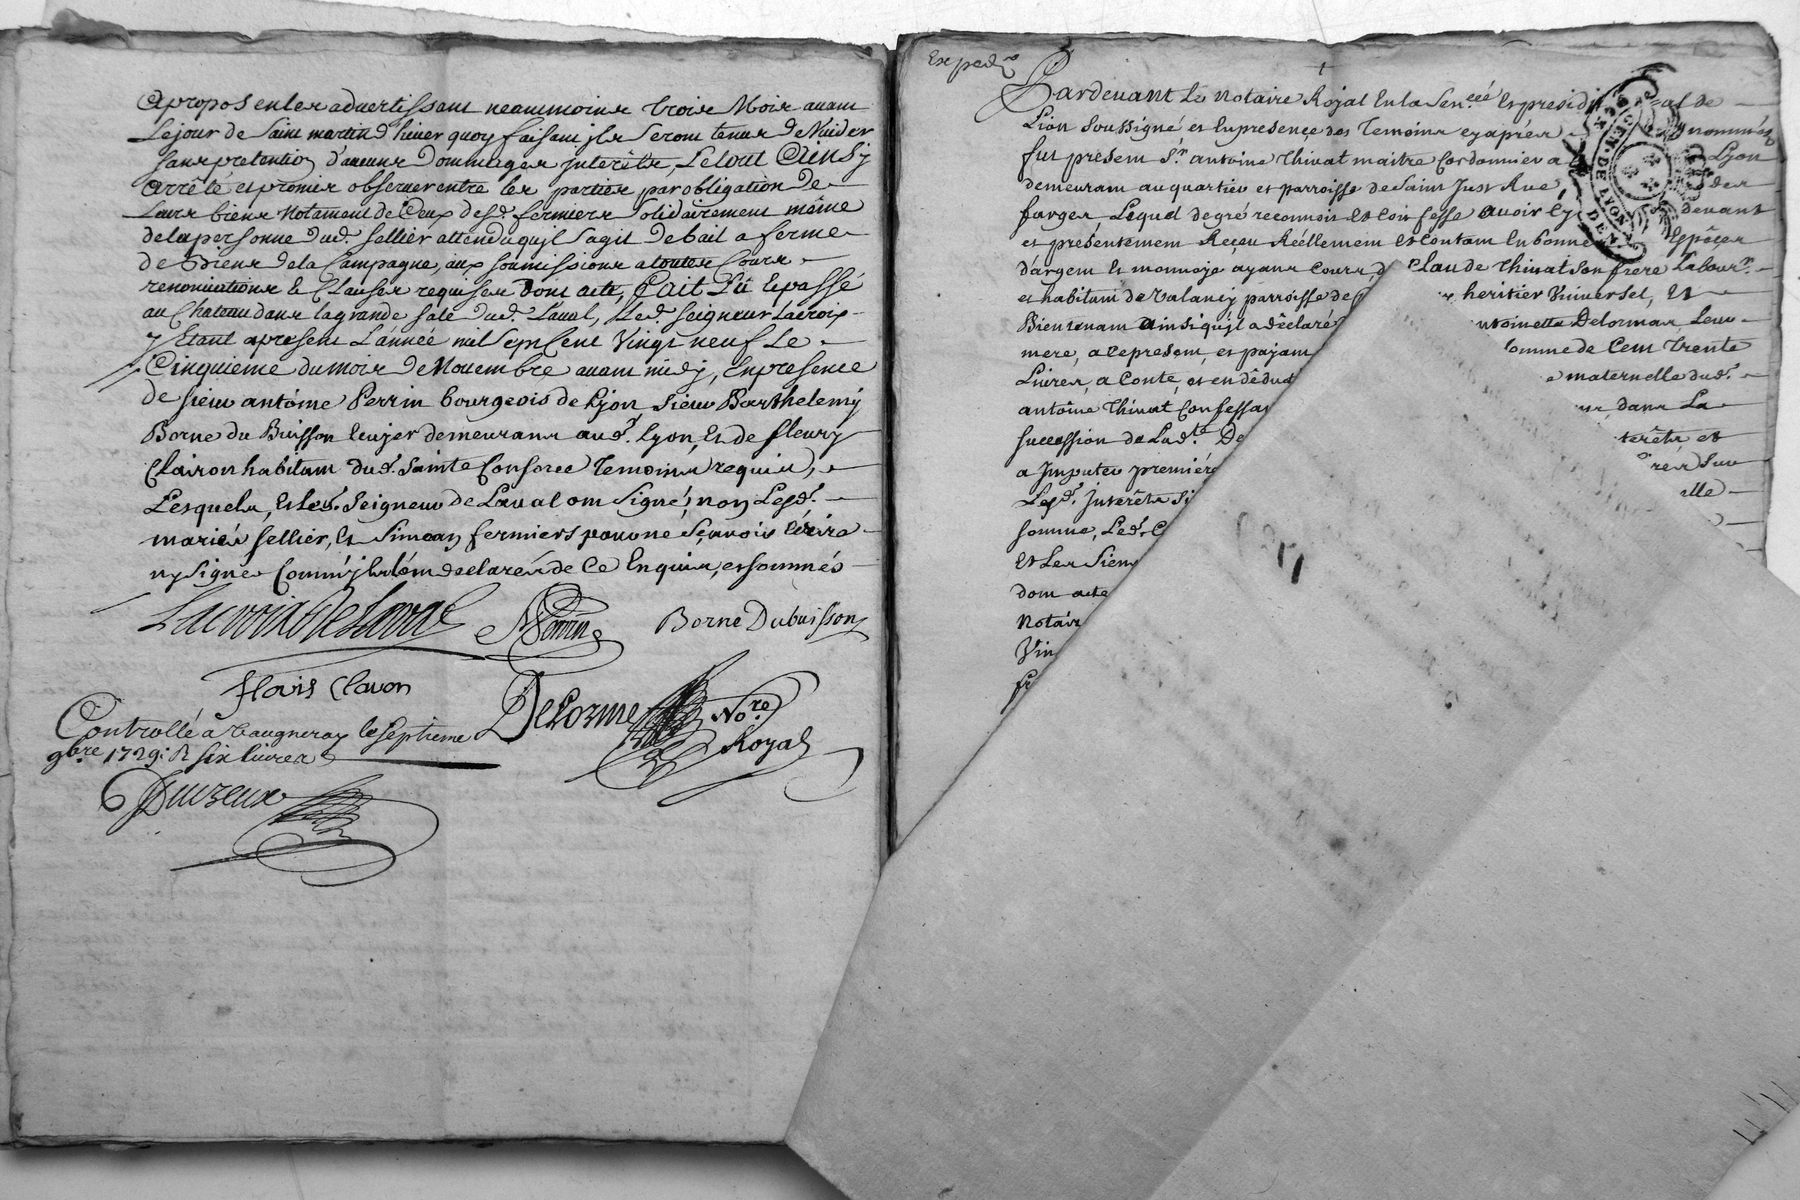 apropos en les advertissant neanmoins trois Mois avant
Le jour de Saint martin d'hiver quoy faisant ils seront tenus de Vuider
sans pretention d'aucuns dommages interêts, Le tout Ainsy
arrêté et promis observer entre les parties par obligation de
Leurs biens Notament de Ceux desd. fermiers solidairement même
de la personne dud. sellier attendu qu'jl s'agit de bail a ferme
de Biens de la Campagne, aux soumissions a toutes Cours
renonciations & Clauses requises Dont acte, fait Lü & passé
au Chateau dans la grande sale dud. Laval, Led. seigneur Lacroix
y Etant apresent L'année mil sept Cent Vingt neuf Le
Cinquieme du mois de Novembre avant midy, En presence
de sieur antoine Perrin bourgeois de Lyon sieur Barthelemy
Borne du Buisson Ecuyer demeurans aud. Lyon, Et de fleury
Clairon habitant dud. Sainte Consorce Temoins requis,
Lesquels, Et led. Seigneur de Laval ont signé, non Lesd.
mariés sellier, Et Simean fermiers pour ne sçavoir Ecrire
ny signer Comm'jls l'ont declaré de Ce Enquis, et sommés
Lacroix de Laval Perrin Borne Dubuisson
floris Clavon
Delorme Nore. Royal
Controllé à Vaugneray le septieme
9bre 1729: R six livres
Duvzeux
Expedié
Pardevant Le Notaire Royal En la Sencéé Et presidial de
Lion Soussigné et En presence des Temoins cy aprés nommés
fut present Sr. antoine Thivat maitre Cordonnier a Lyon
demeurant au quartier et parroisse de Saint Just Rue des
farges Lequel de gré reconnois et Confesse avoir Cy devant
et présentement Reçu Réellement Et Contant En bonne Espêces
d'argent Et monnoje ayans Cours de Claude Thivat son frere Labourr.
et habitant de Valancy parroisse de heritier Vniversel, Et
Bientenant ainsi qu'jl a déclaré antoinette Delormas Leur
mere, a ce present, et payant somme de Cent Trente
Livres, a Conte, et en dédu maternelle dud.
antoine Thivat Confessa dans La
succession de Lad.te De terêts et
a Jmputer premiére sur
Lesd. Jnterêts si elle
somme, Led. C
Et Les Siens
dont acte
Notair
Vin
GENER. DE LYON